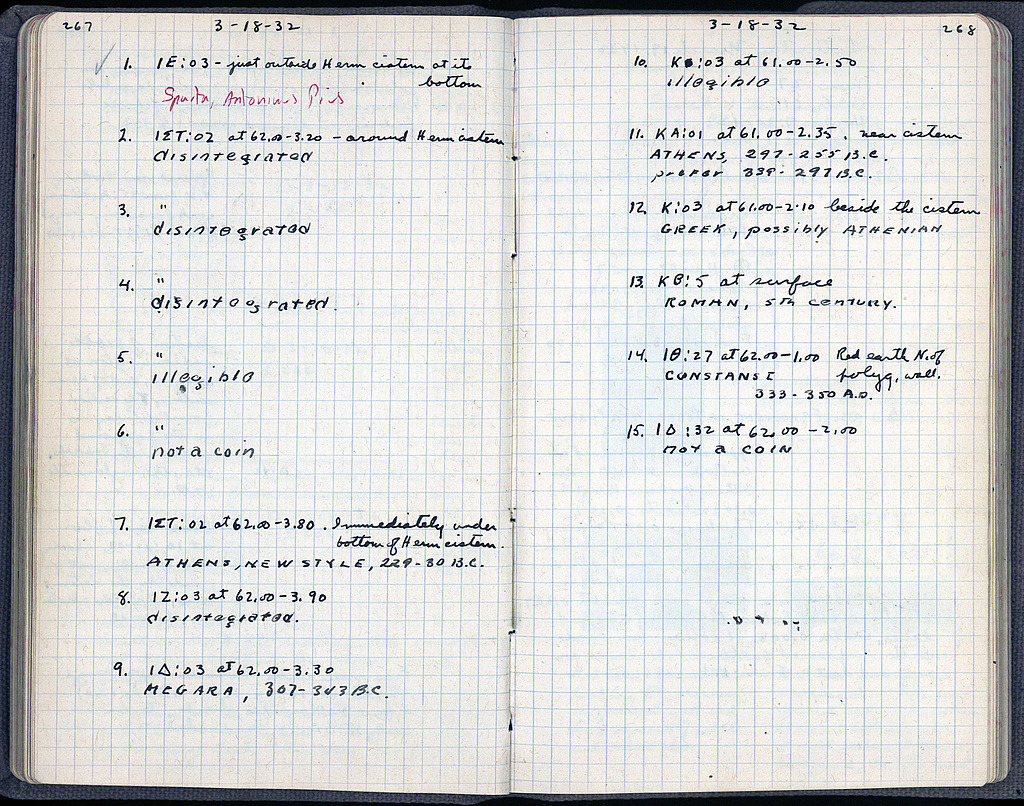 267
3-18-32
1. ΙΕ:03 - just outside Herm cistern at its
bottom
Sparta, Antoninus Pius
2. ΙΣΤ:02 at 62.00-3.20 - around Herm cistern
disintegrated
3. "
disintegrated
4. "
disintegrated.
5. "
illegible
6. "
not a coin
7. ΙΣΤ:02 at 62.00-3.80. Immediately under
bottom of Herm cistern.
ATHENS, NEW STYLE, 229-30 B.C.
8. ΙΖ:03 at 62.00-3.90
disintegrated.
9. ΙΔ:03 at 62.00-3.30
MEGARA, 307-243 B.C.
3-18-32
268
10. Κ:03 at 61.00-2.50
illegible
11. ΚΑ:01 at 61.00-2.35. near cistern
ATHENS, 297-255 B.C.
prefer 339-297 B.C.
12. Κ:03 at 61.00-2.10 beside the cistern
GREEK, possibly ATHENIAN
13. ΚΒ:5 at surface
ROMAN, 5th century.
14. ΙΘ:27 at 62.00-1.00 Red earth N. of
CONSTANS I polyg. wall.
333-350 A.D.
15. ΙΔ:32 at 62.00-2.00
not a coin